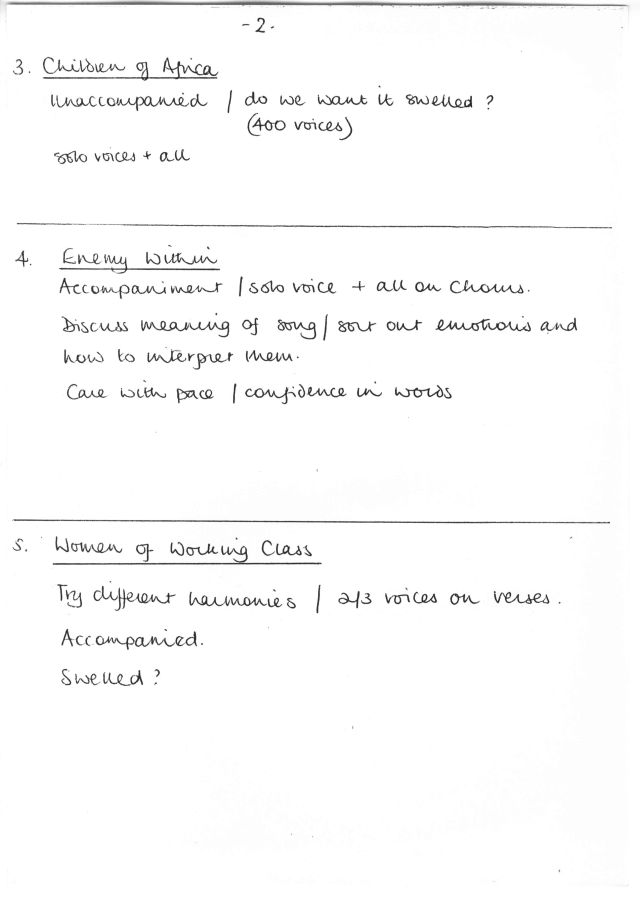 -2-
3. Children of Africa
Unaccompanied / do we want it swelled ?
(400 voices)
solo voices + all
4. Enemy Within
Accompaniment / solo voice + all on Chorus.
Discuss meaning of song / sort out emotions and
how to interpret them.
Care with pace / confidence in words
5. Women of Working Class
Try different harmonies / 2/3 voices on verses.
Accompanied.
Swelled ?